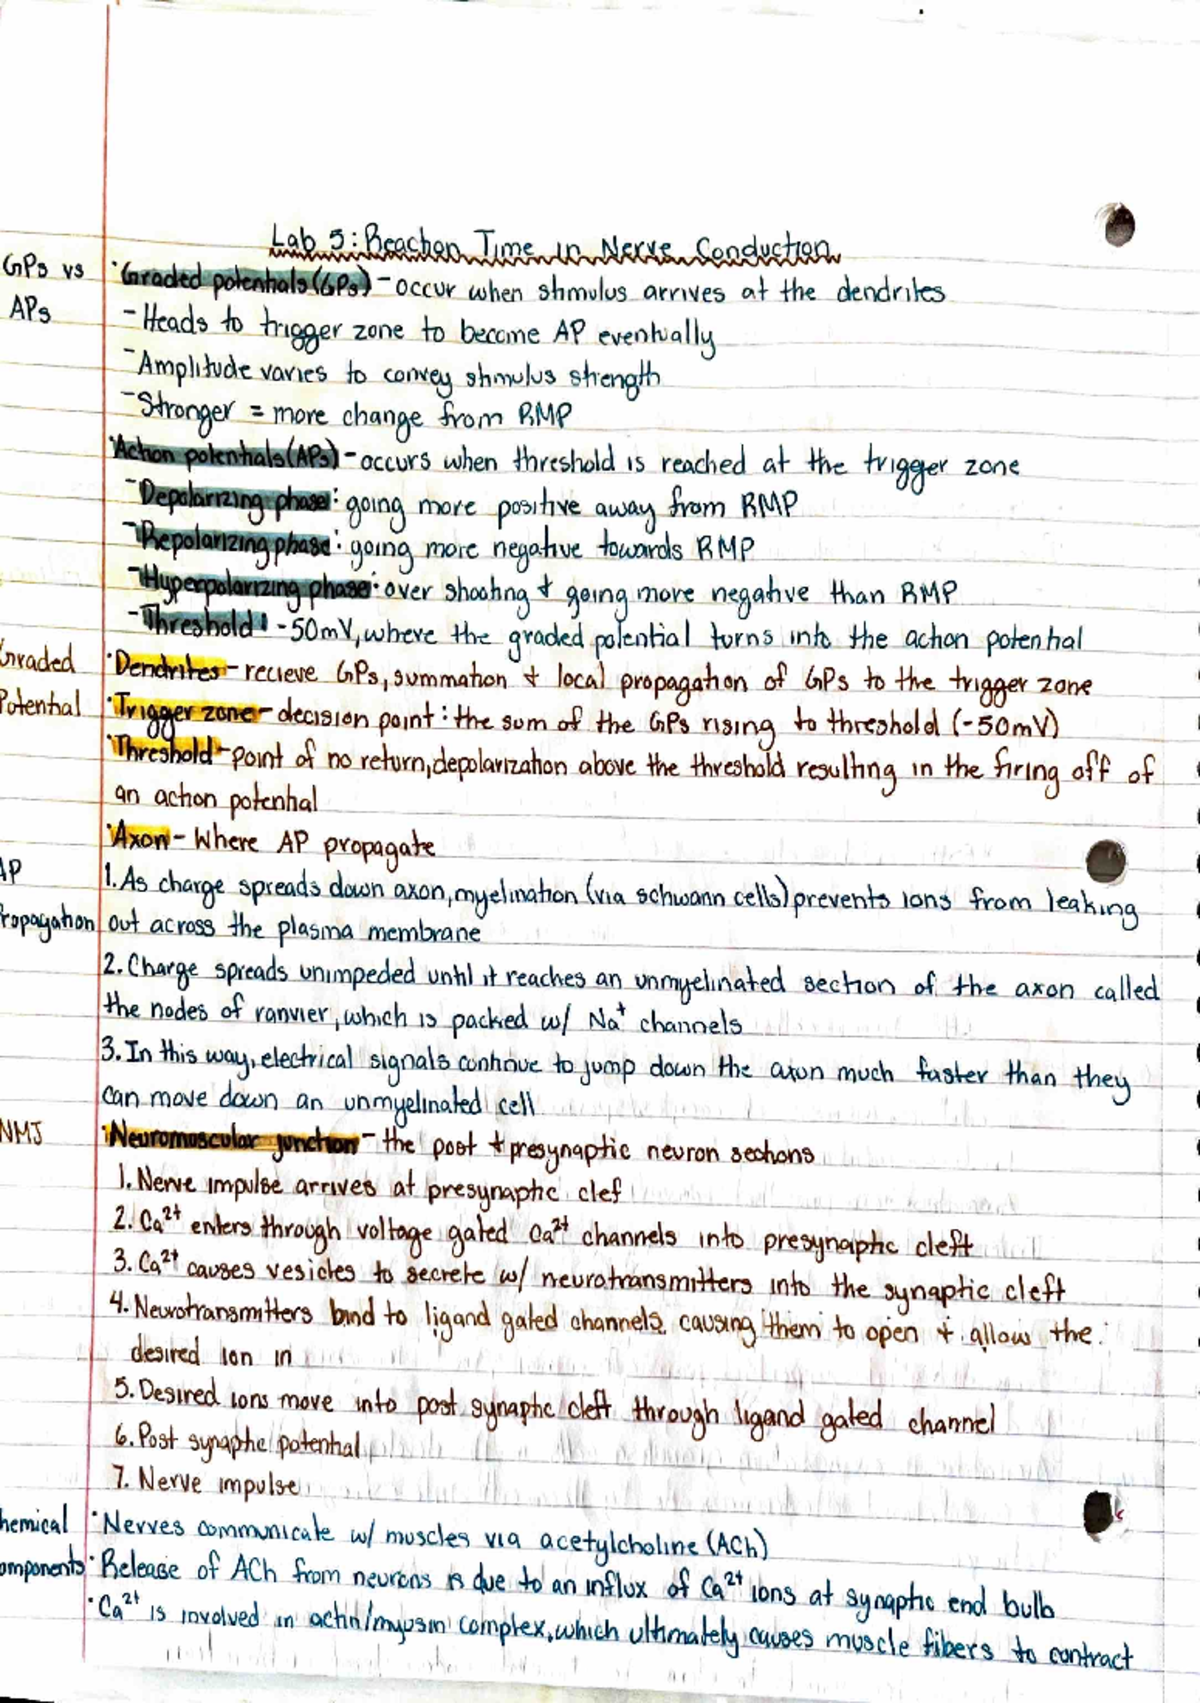 Lab 5: Reaction Time in Nerve Conduction
GPs vs
APs
·Graded potentials (GPs) - occur when stimulus arrives at the dendrites
- Heads to trigger zone to become AP eventually
- Amplitude varies to convey stimulus strength
- Stronger = more change from RMP
·Action potentials (APs) - occurs when threshold is reached at the trigger zone
- Depolarizing phase: going more positive away from RMP
- Repolarizing phase: going more negative towards RMP
- Hyperpolarizing phase: over shooting + going more negative than RMP
- Threshold: -50mV, where the graded potential turns into the action potential
Graded
Potential
·Dendrites - recieve GPs, summation + local propagation of GPs to the trigger zone
·Trigger zone - decision point: the sum of the GPs rising to threshold (-50mV)
·Threshold - point of no return, depolarization above the threshold resulting in the firing off of
an action potential
·Axon - Where AP propagate
AP
Propagation
1. As charge spreads down axon, myelination (via schwann cells) prevents ions from leaking
out across the plasma membrane
2. Charge spreads unimpeded until it reaches an unmyelinated section of the axon called
the nodes of ranvier, which is packed w/ Na⁺ channels
3. In this way, electrical signals continue to jump down the axon much faster than they
can move down an unmyelinated cell
NMJ
·Neuromuscular junction - the post + presynaptic neuron sections
1. Nerve impulse arrives at presynaptic clef
2. Ca²⁺ enters through voltage gated Ca²⁺ channels into presynaptic cleft
3. Ca²⁺ causes vesicles to secrete w/ neurotransmitters into the synaptic cleft
4. Neurotransmitters bind to ligand gated channels, causing them to open + allow the
desired ion in
5. Desired ions move into post synaptic cleft through ligand gated channel
6. Post synaptic potential
7. Nerve impulse
hemical
omponents
·Nerves communicate w/ muscles via acetylcholine (ACh)
·Release of ACh from neurons is due to an influx of Ca²⁺ ions at synaptic end bulb
·Ca²⁺ is involved in actin/myosin complex, which ultimately causes muscle fibers to contract